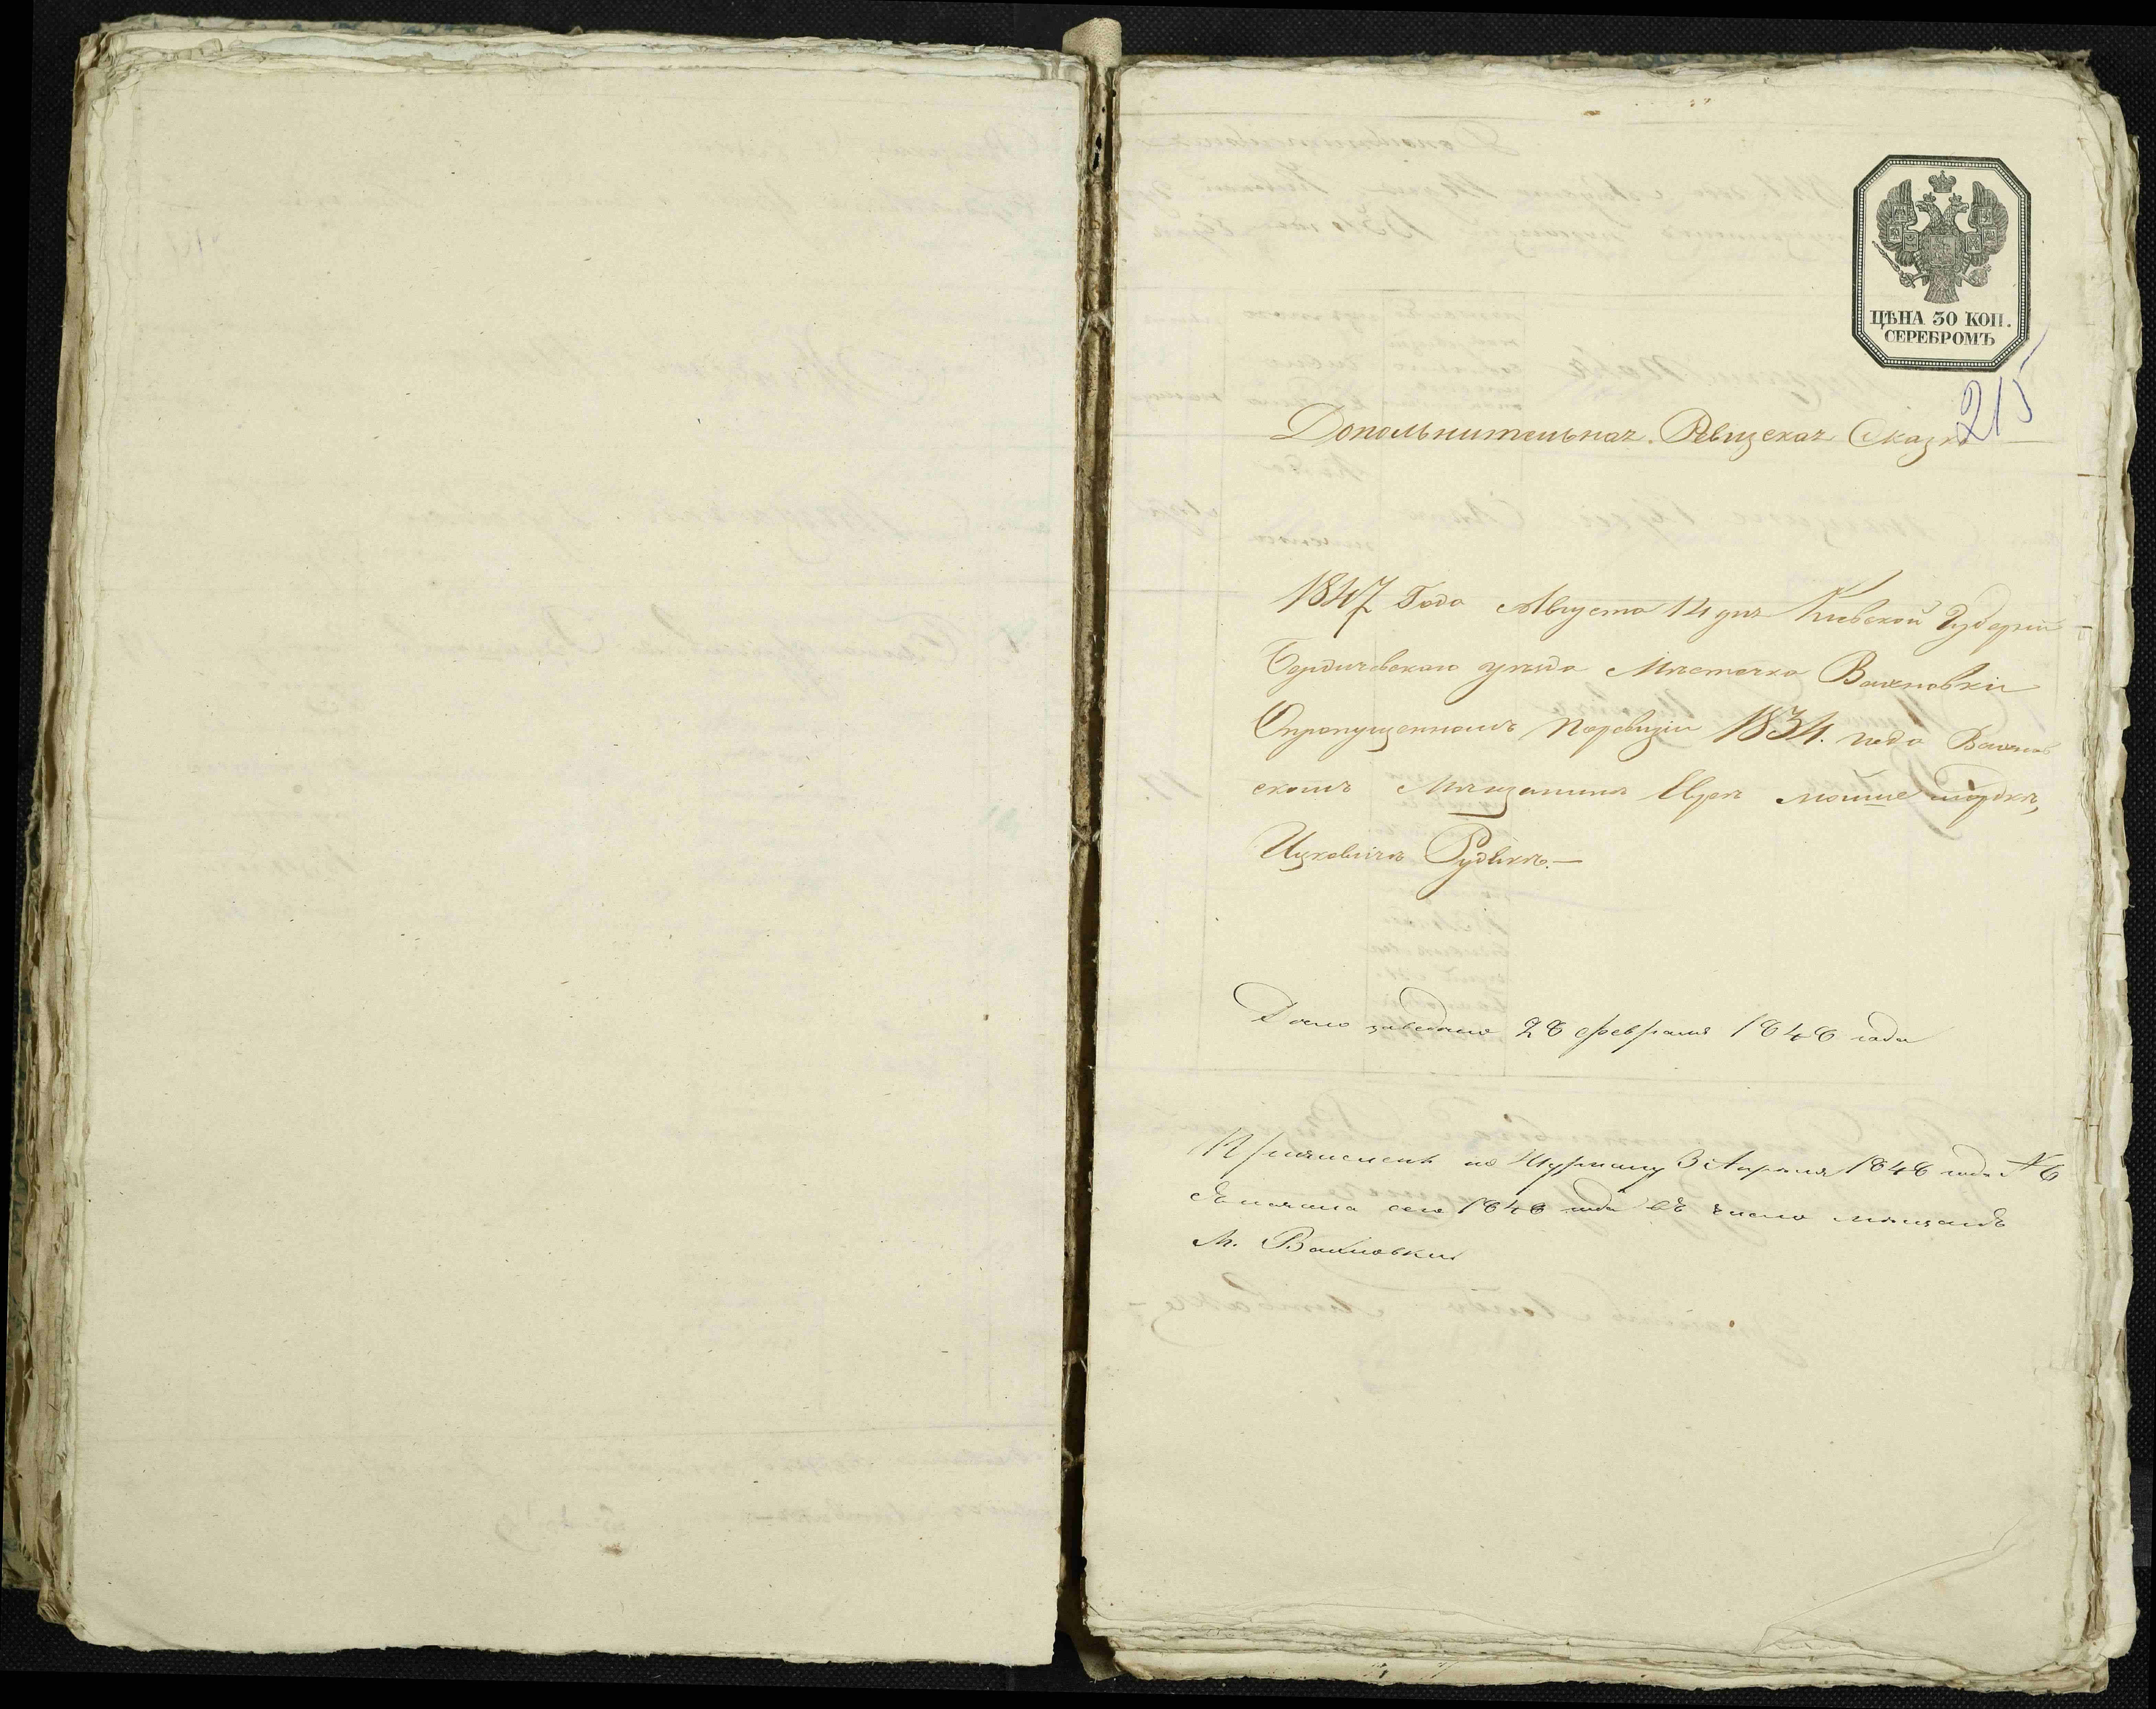 ЦѢНА 30 КОП.
СЕРЕБРОМЪ
215
Допольнительная Ревизская Сказка
1847 Года Августа 14 дня Киевской Губернии
Бердичевскаго уезда Местечка Вахновки
О пропущенномъ По ревизии 1834. года Вахнов
скомъ Мещанине Еврее Мошке
Ицковиче Рудыкъ.—
Дело заведено 28 февраля 1848 года
Причисленъ по Журналу 3 Апреля 1848 года № 6
съ начала сего 1848 года въ число мещанъ
М. Вахновки